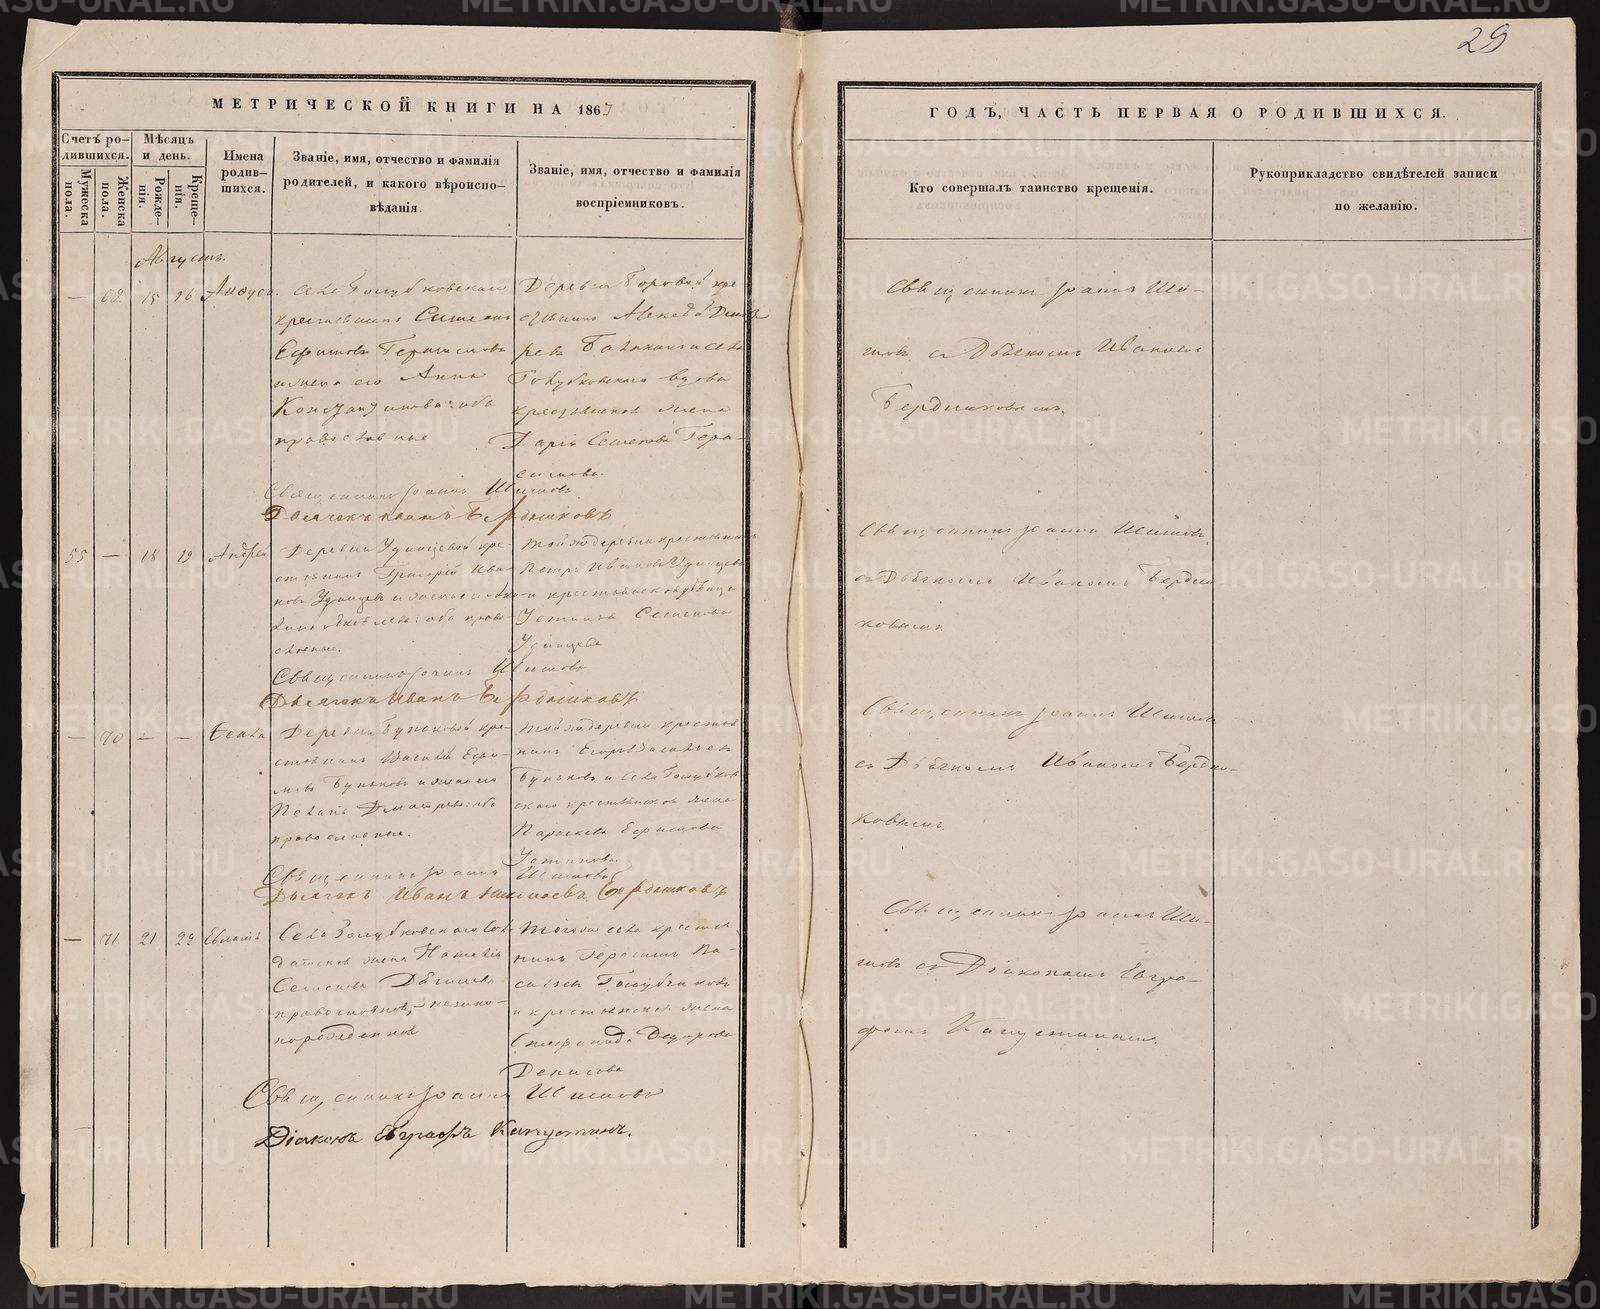 29
МЕТРИЧЕСКОЙ КНИГИ НА 1867
ГОДЪ, ЧАСТЬ ПЕРВАЯ О РОДИВШИХСЯ.
Счетъ родившихся.
Мужеска пола.
Женска пола.
Мѣсяцъ и день.
Рожденія.
Крещенія.
Имена родившихся.
Званіе, имя, отчество и фамилія
родителей, и какого вѣроиспо-
вѣданія.
Званіе, имя, отчество и фамилія
воспріемниковъ.
Кто совершалъ таинство крещенія.
Рукоприкладство свидѣтелей записи
по желанію.
Августъ.
— 69. 15 16
Села Голубковскаго
крестьянинъ
Ефимовъ Герасимовъ
и жена его Анна
Константинова: оба
православные
Деревни Боровой кре
стьянинъ
и села
Голубковскаго вдова
крестьянская жена
Дарія Семенова Гера-
симова.
Священникъ Іоаннъ Шишовъ
Дьячекъ Иванъ Бердышковъ
Священникъ Іоаннъ Ши-
шовъ съ Дьячкомъ Иваномъ
Бердышковымъ.
55 — 18 19 Андрей
Деревни Удинцевой кре-
стьянинъ Григорій Ива-
новъ Удинцевъ и жена его
Яковлева: оба право-
славные.
Той же деревни крестьянинъ
Петръ Ивановъ Удинцевъ
и крестьянская дѣвица
Устинья Семенова
Удинцева
Священникъ Іоаннъ Шишовъ
Дьячекъ Иванъ Бердышковъ
Священникъ Іоаннъ Шишовъ
съ Дьячкомъ Иваномъ Бердыш-
ковымъ.
— 70 — — Ѳекла
Деревни Бунковой кре-
стьянинъ Василій Ефи-
мовъ Бунковъ и жена его
Пелагія Дмитріева: оба
православные.
Той же деревни крестьян
нинъ Егоръ Васильевъ
Бунковъ и села Голубков
скаго крестьянская жена
Параскева Ефимова
Устинова.
Священникъ Іоаннъ Шишовъ
Дьячекъ Иванъ Николаевъ Бердышковъ
Священникъ Іоаннъ Шишовъ
съ Дьячкомъ Иваномъ Бердыш-
ковымъ.
— 71 21 22
Села Голубковскаго сол
датская жена Наталія
Семенова
православная, незакон-
норожденная
Того же села крестья
нинъ Герасимъ Ва-
сильевъ Голубчиковъ
и крестьянская жена
Стефанида
Денисова
Священникъ Іоаннъ Шишовъ
Діаконъ Евграфъ Капустинъ.
Священникъ Іоаннъ Ши-
шовъ съ Діакономъ Евгра-
фомъ Капустинымъ.
METRIKI.GASO-URAL.RU